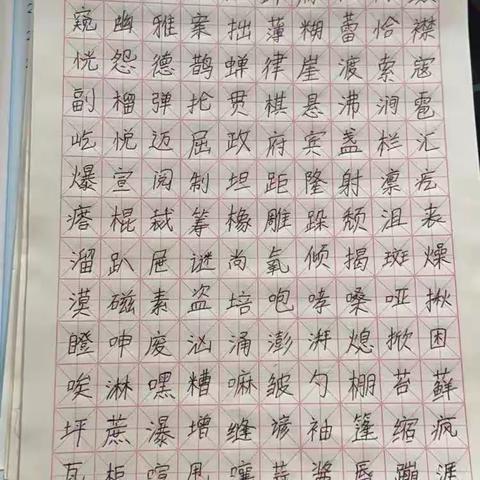 窥幽雅案拙薄糊蕾恰襟
恍怨德鹊蝉律崖渡索寇
副榴弹抡贯棋悬沸涧雹
屹悦迈屈政府宾盏栏汇
爆宣阅制坦距隆射凛疙
瘩棍裁筹橡雕跺颓沮丧
溜趴屉谜尚氧倾揭斑燥
漠磁素盗培咆哮嗓哑揪
瞪呻废汹涌澎湃熄掀困
唉淋嘿糟嘛皱勺棚苔藓
坪蔗瀑增缝谚袖篷缩疯
瓦柜喧甩嚷蒜酱唇蹦涯